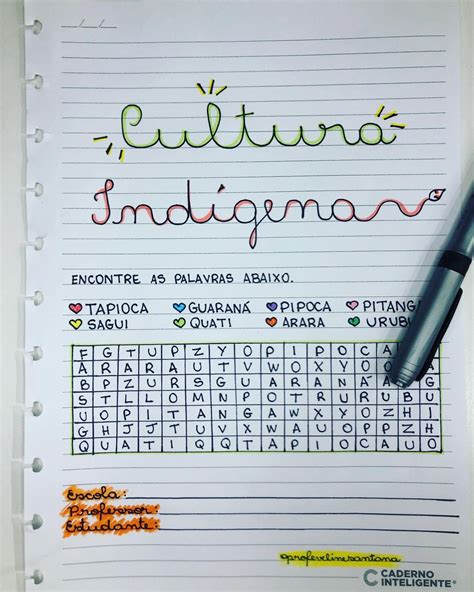 __/__/__
Cultura
Indígena
ENCONTRE AS PALAVRAS ABAIXO.
TAPIOCA GUARANÁ PIPOCA PITANGA
SAGUI QUATI ARARA URUBU
F G T U P Z Y O P I P O C A
A R A R A U T V W O X Y O
B P Z U R S G U A R A N Á G
S T L L O M N P O T R U R U B U
U O P I T A N G A W X Y O Z H I
G H J J T U V X W A U O P P Z H
Q U A T I Q Q T A P I O C A U O
Escola:
Professor:
Estudante:
@profevelinesantana
CADERNO
INTELIGENTE®